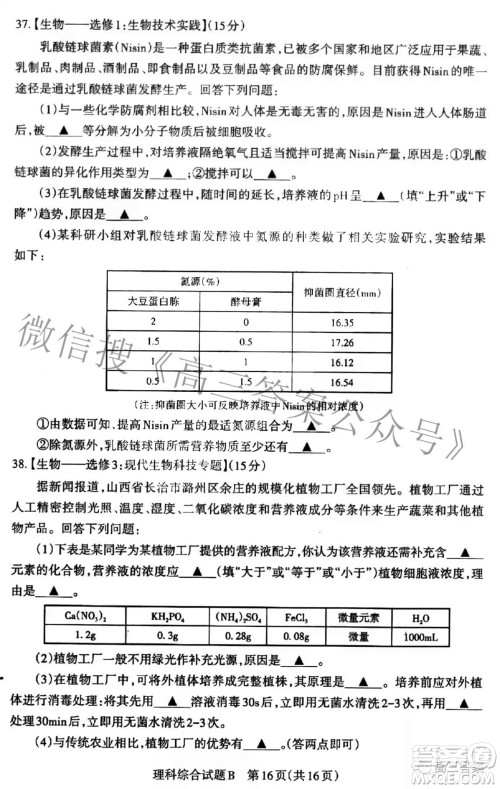 37.【生物——选修1:生物技术实践】(15分)
乳酸链球菌素(Nisin)是一种蛋白质类抗菌素,已被多个国家和地区广泛应用于果蔬、
乳制品、肉制品、酒制品、即食制品以及豆制品的防腐保鲜。目前来看,获得Nisin的唯一
途径是通过乳酸链球菌发酵生产。回答下列问题:
(1)与一些化学防腐剂相比较,Nisin对人体是无毒无害的,原因是Nisin进入人体肠道
后,被 ▲ 等分解为小分子物质后被细胞吸收。
(2)发酵生产过程中,对培养液隔绝氧气且适当搅拌可以提高产量。原因是:①乳酸
链球菌的异化作用类型为 ▲ ;②搅拌可以 ▲ 。
(3)在乳酸链球菌发酵过程中,随时间的延长,培养液的pH呈 ▲ (填“上升”或“下
降”)趋势,原因是 ▲ 。
(4)某科研小组对乳酸链球菌发酵液中氮源的种类做了相关实验研究,实验结果
如下:
氮源(%) 抑菌圈直径(mm)
大豆蛋白胨 酵母膏
2 0 16.35
1.5 0.5 17.26
1 1 16.12
0.5 1.5 16.54
(注:抑菌圈大小可反映培养液中Nisin的相对浓度)
①由数据可知,提高Nisin产量的最适氮源组合为 ▲ 。
②除氮源外,乳酸链球菌所需营养物质至少还有 ▲ 。
38.【生物——选修3:现代生物科技专题】(15分)
据新闻报道,山西省长治市潞州区余庄的规模化植物工厂全国领先。植物工厂通过
人工精密控制光照、温度、湿度、二氧化碳浓度和营养液成分等条件来生产蔬菜和其他
植物产品。回答下列问题:
(1)下表是某同学为某植物工厂提供的营养液配方,你认为该配方中还应该有含 ▲
元素的化合物,营养液的浓度应 ▲ (填“大于”或“等于”或“小于”)植物根细胞液的浓度,
理由是 ▲ 。
Ca(NO₃)₂ KH₂PO₄ (NH₄)₂SO₄ FeCl₃ 微量元素 H₂O
1.2g 0.3g 0.28g 0.08g 微量 1000mL
(2)植物工厂一般不用绿光作补充光源,原因是 ▲ 。
(3)在植物工厂,可将外植体培养成完整植株,其原理是 ▲ 。培养前应对外植体
进行消毒处理:将其先用 ▲ 溶液消毒30s后,立即用无菌水清洗2-3次。再用 ▲
处理30min后,立即用无菌水清洗2-3次。
(4)与传统农业相比,植物工厂的优势有 ▲ 。
理科综合试题B 第16页(共16页)
微信搜《高三答案公众号》